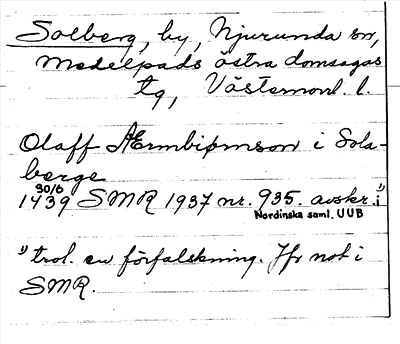 Solberg, by, Njurunda sn,
Medelpads östra domsagas
tg, Västernorrl. l.
Olaff Ærnbiørnson i Sola-
berge
30/6
1439 SMR 1937 nr. 935. avskr. i 1)
Nordinska saml. UUB
1) trol. en förfalskning. Jfr not i
SMR.